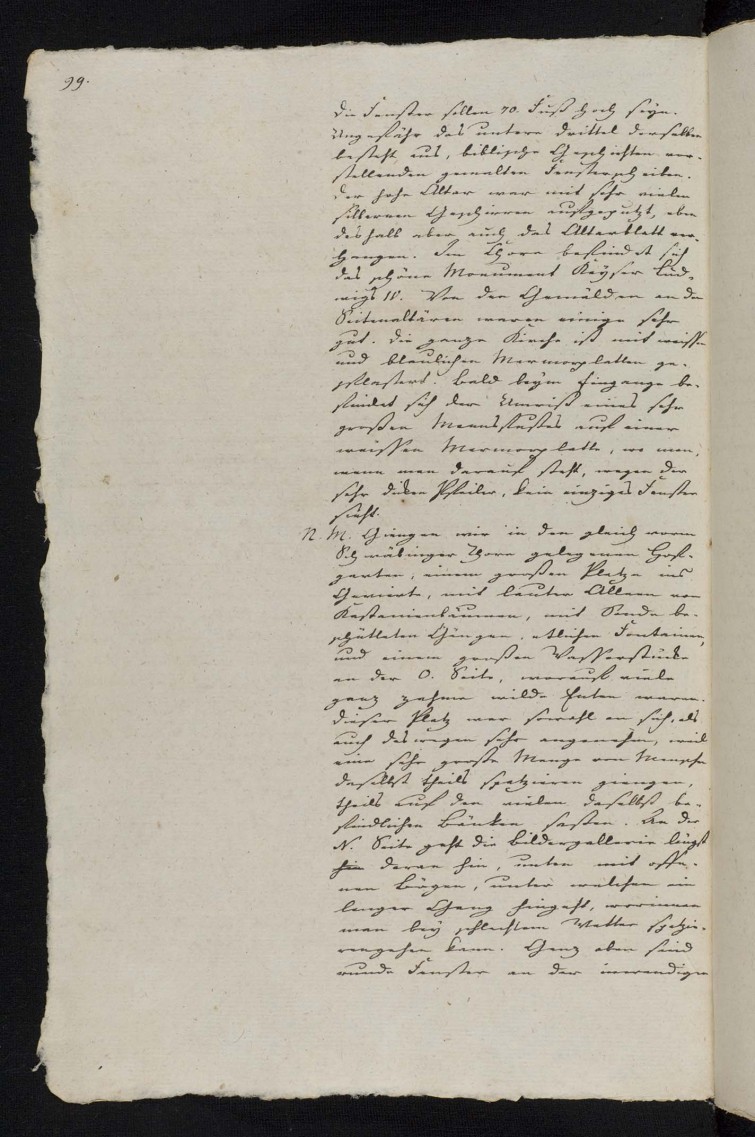 99.
Die Fenster sollen 70. Fuß hoch seyn.
Ungefähr das untere Drittel derselben
besteht aus, biblische Geschichten vor-
stellenden gemalten Fensterscheiben.
Der hohe Altar war mit sehr vielen
silbernen Geschirren aufgeputzt, eben
deshalb aber auch das Altarblatt ver-
hangen. Im Chore befindet sich
das schöne Monument Keyser Lud-
wigs IV. Von den Gemälden an den
Seitenaltären waren einige sehr
gut. Die ganze Kirche ist mit weissen
und blaulichen Marmorplatten ge-
pflastert. Bald beym Eingange be-
findet sich der Umriß eines sehr
großen Mannsfußes auf einer
weissen Marmorplatte, wo man,
wenn man darauf steht, wegen der
sehr dicken Pfeiler, kein einziges Fenster
sieht.
N. M. Giengen wir in den gleich vorm
Schwäbinger Thore gelegenen Hof-
garten, einem großen Platze ins
Gevierte, mit lauter Alleen von
Kastanienbäumen, mit Sande be-
schütteten Gängen, etlichen Fontainen,
und einem großen Wasserstücke
an der O. Seite, worauf viele
ganz zahme wilde Enten waren.
Dieser Platz war sowohl an sich, als
auch deswegen sehr angenehm, weil
eine sehr große Menge von Menschen
daselbst theils spatzieren giengen,
theils auf den vielen daselbst be-
findlichen Bänken saßen. An der
N. Seite geht die Bildergallerie längst
hin daran hin, unten mit offe-
nen Bögen, unter welchen ein
langer Gang hingeht, worinnen
man bey schlechtem Wetter spatzie-
rengehen kann. Ganz oben sind
runde Fenster an der inwendigen